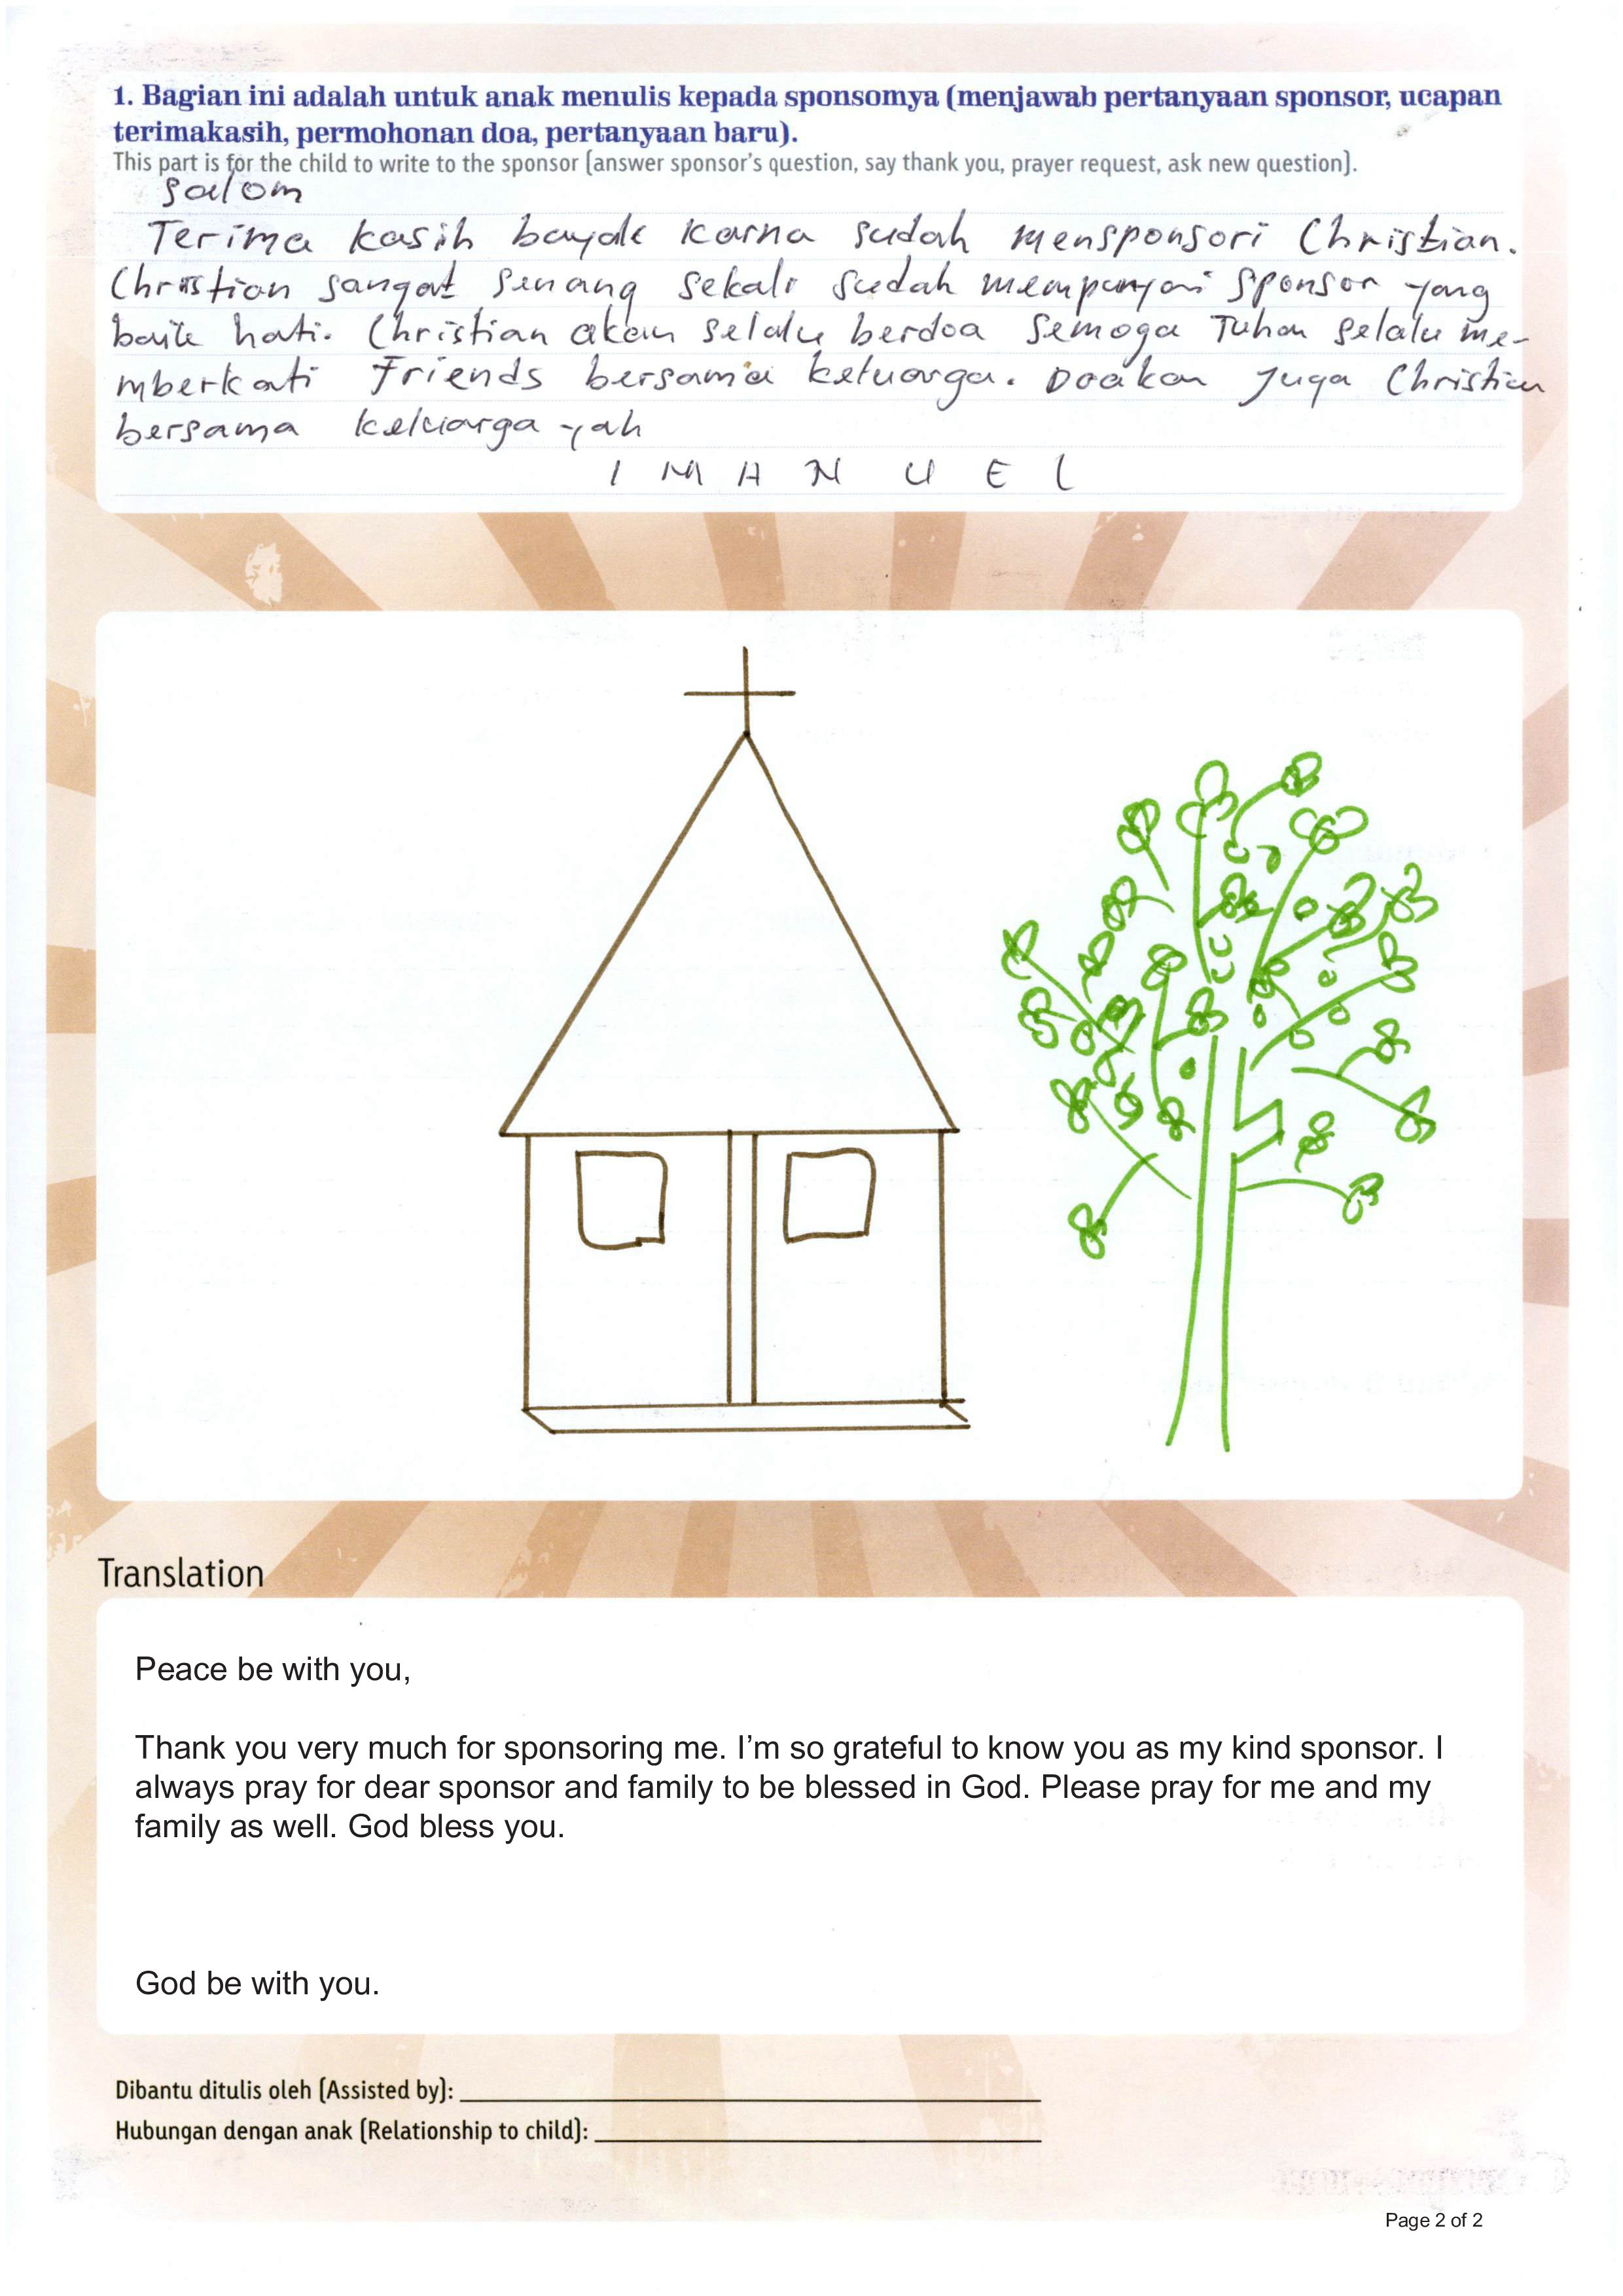 1. Bagian ini adalah untuk anak menulis kepada sponsomya (menjawab pertanyaan sponsor, ucapan
terimakasih, permohonan doa, pertanyaan baru).
This part is for the child to write to the sponsor (answer sponsor's question, say thank you, prayer request, ask new question).
Salom
Terima kasih bayak karna sudah mensponsori Christian.
Christian sangat senang sekali sudah mempunyai sponsor yang
baik hati. Christian akan selalu berdoa semoga Tuhan selalu me-
mberkati Friends bersama keluarga. Doakan juga Christian
bersama keluarga yah
I M A N U E L
Translation
Peace be with you,
Thank you very much for sponsoring me. I'm so grateful to know you as my kind sponsor. I
always pray for dear sponsor and family to be blessed in God. Please pray for me and my
family as well. God bless you.
God be with you.
Dibantu ditulis oleh (Assisted by):
Hubungan dengan anak (Relationship to child):
Page 2 of 2